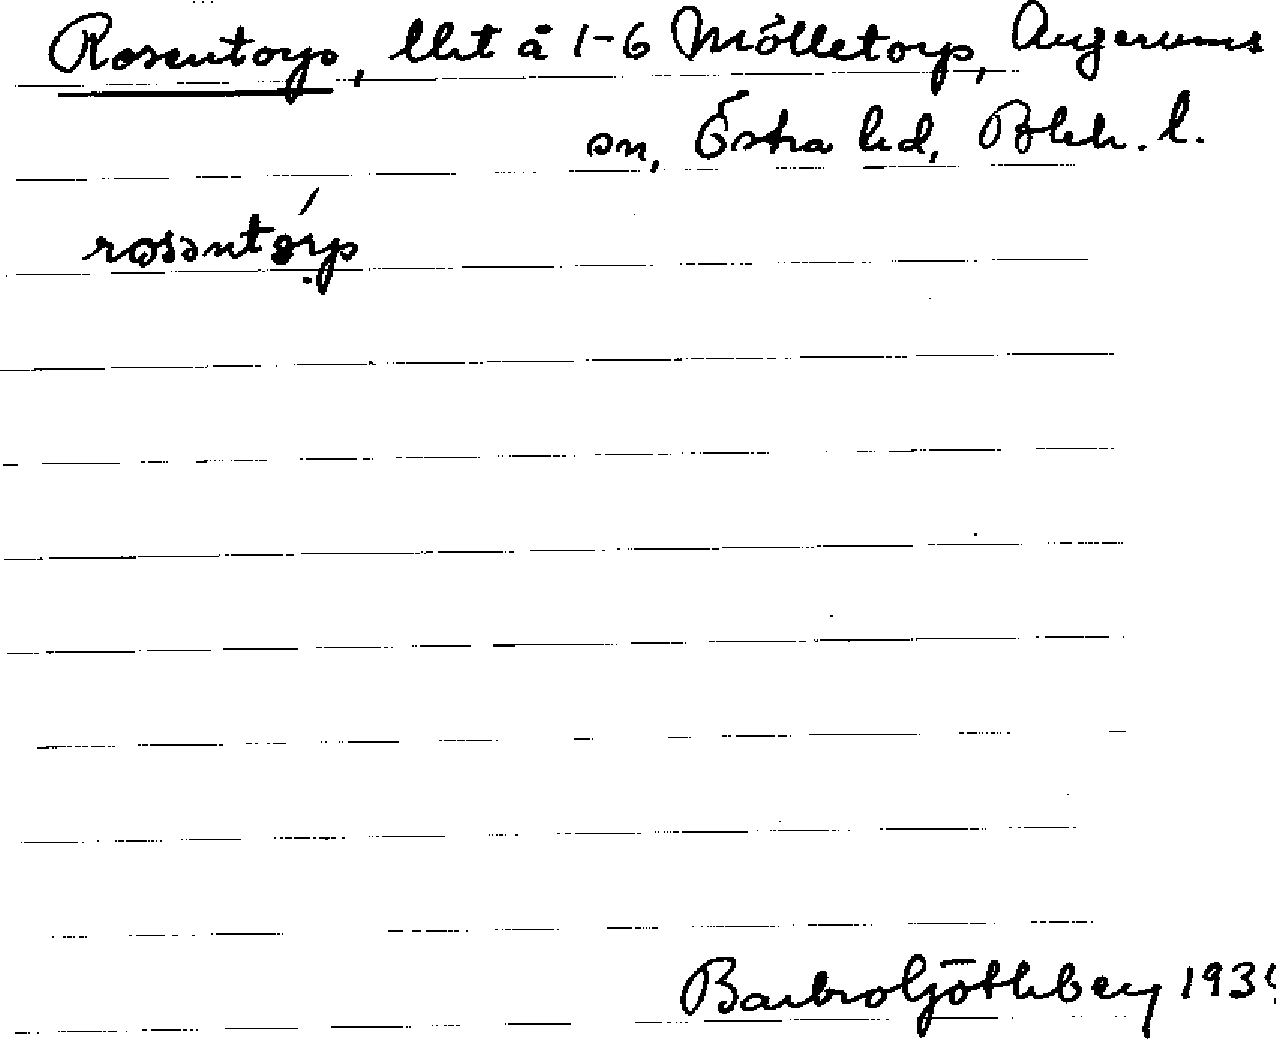 Rosentorp, lht å 1-6 Mölletorp, Augerums
sn, Östra hd, Blek. l.
rosəntórp
Barbro Göthberg